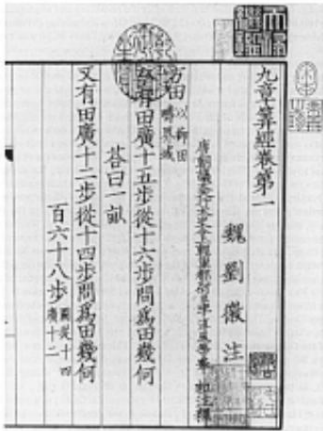 九章筭經卷第一
魏 劉 徽 注
唐朝議大夫行太史令上輕車都尉臣李淳風等奉 敕注釋
方田 以御田疇界域
今有田廣十五步從十六步問爲田幾何
荅曰一畝
又有田廣十二步從十四步問爲田幾何
百六十八步 圖從十四廣十二